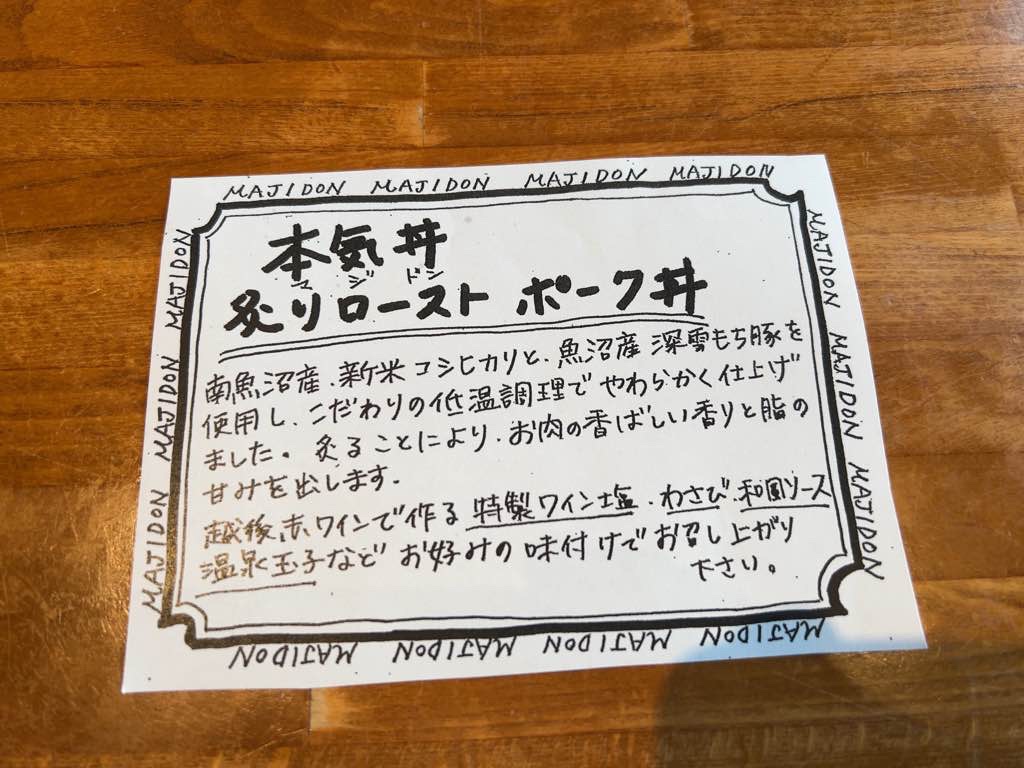 MAJIDON MAJIDON MAJIDON MAJIDON
本気丼
マジドン
炙りローストポーク丼
南魚沼産、新米コシヒカリと、魚沼産 深雪もち豚を
使用し、こだわりの低温調理でやわらかく仕上げ
ました。炙ることにより、お肉の香ばしい香りと脂の
甘みを出します。
越後赤ワインで作る 特製ワイン塩、わさび、和風ソース
温泉玉子などお好みの味付けでお召し上がり
下さい。
MAJIDON MAJIDON MAJIDON
MAJIDON MAJIDON MAJIDON MAJIDON
MAJIDON MAJIDON MAJIDON